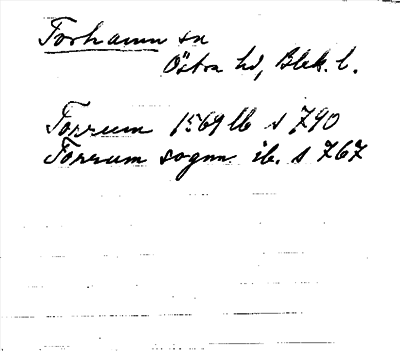 Torhamn sn
Östra hd, Blek. l.
Torrum 1569 lb s 790
Torrum sognn ib. s 767